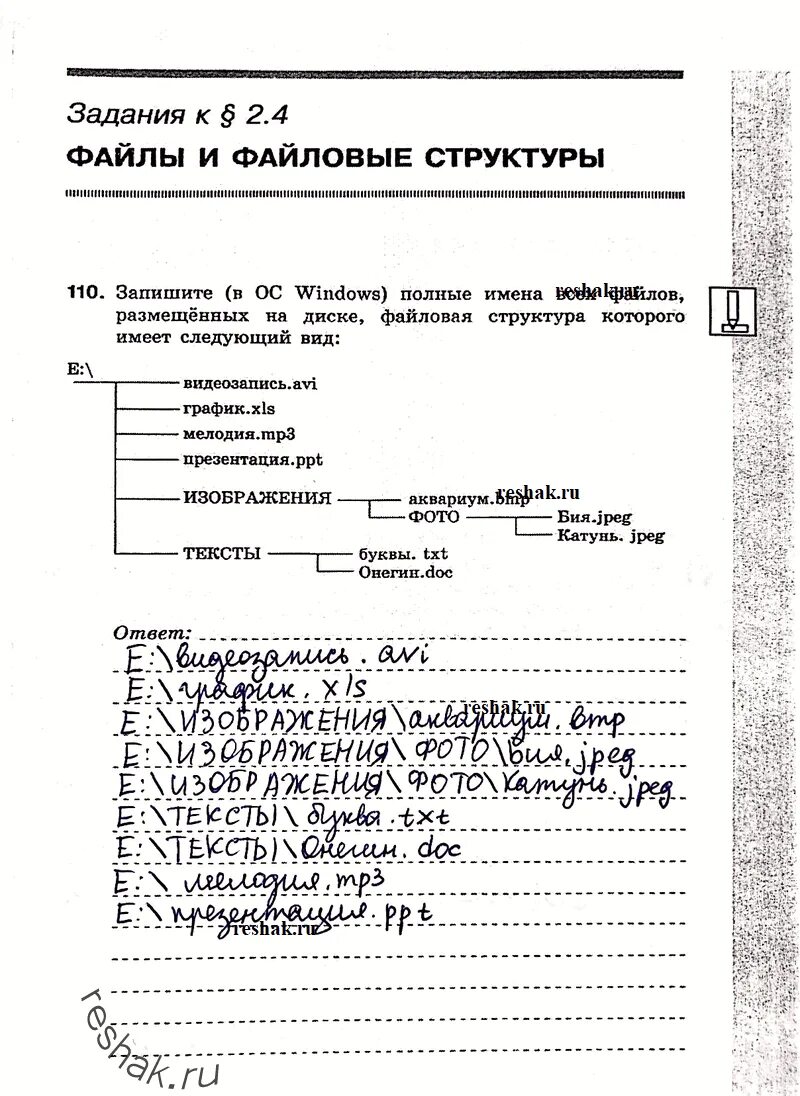 Задания к § 2.4
ФАЙЛЫ И ФАЙЛОВЫЕ СТРУКТУРЫ
110. Запишите (в ОС Windows) полные имена всех файлов,
reshak.ru
размещённых на диске, файловая структура которого
имеет следующий вид:
E:\
видеозапись.avi
график.xls
мелодия.mp3
презентация.ppt
ИЗОБРАЖЕНИЯ аквариум.bmp
reshak.ru
ФОТО Бия.jpeg
Катунь. jpeg
ТЕКСТЫ буквы. txt
Онегин.doc
Ответ:
E:\видеозапись. avi
E:\график. xls
reshak.ru
E:\ИЗОБРАЖЕНИЯ\аквариум. bmp
E:\ИЗОБРАЖЕНИЯ\ ФОТО\Бия.jpeg
E:\ИЗОБРАЖЕНИЯ\ФОТО\Катунь.jpeg
E:\ТЕКСТЫ\ буква.txt
E:\ТЕКСТЫ\Онегин.doc
E:\ мелодия.mp3
E:\презентация.ppt
reshak.ru
reshak.ru